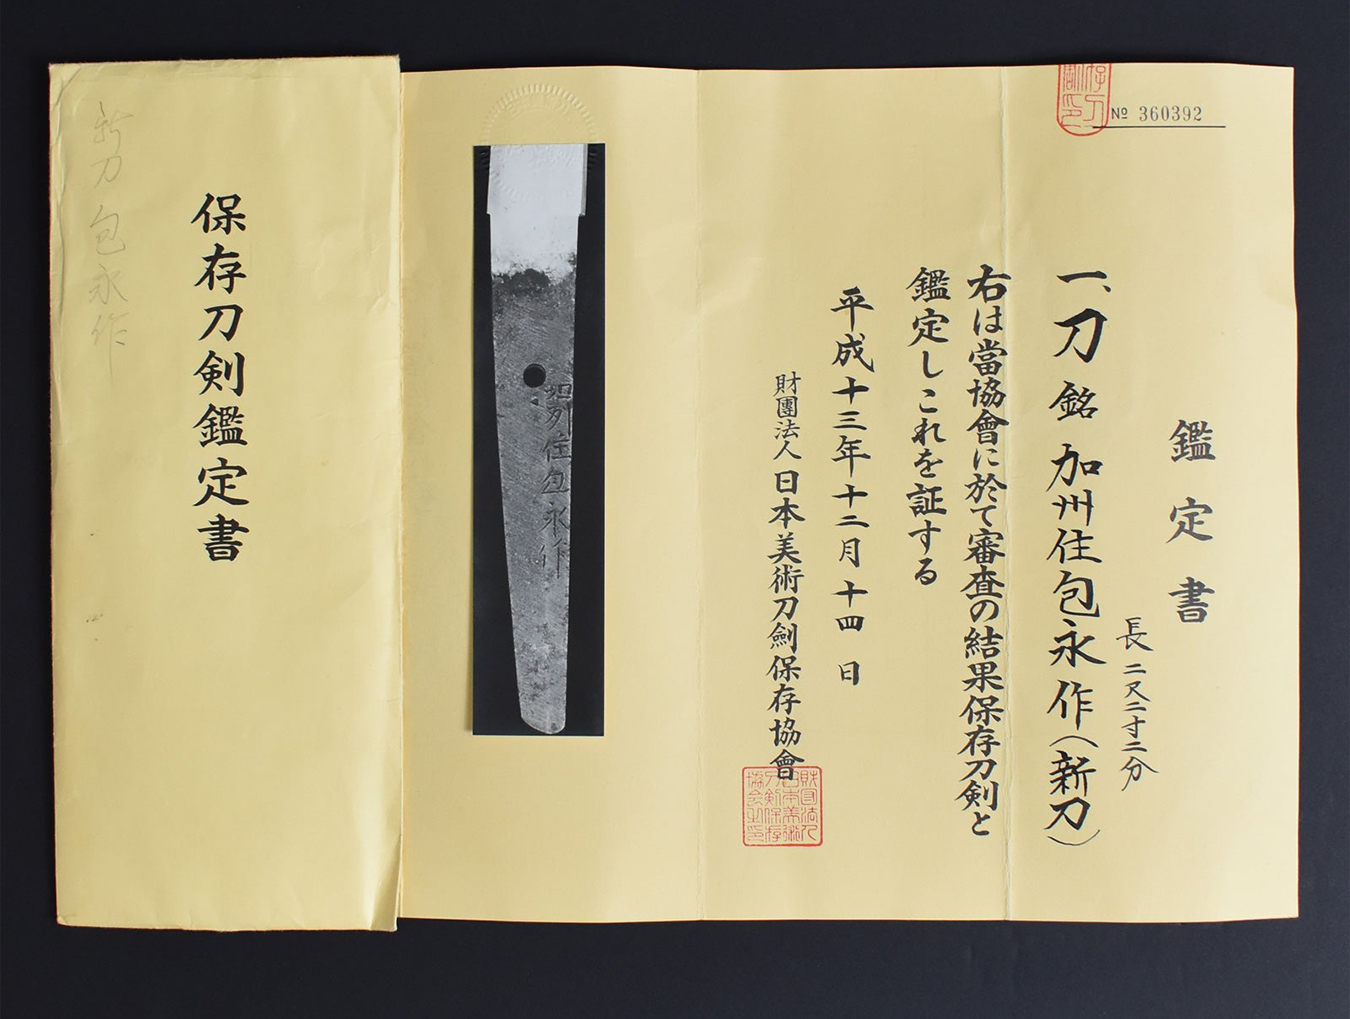 № 360392
鑑定書
一、刀 銘 加州住包永作（新刀）
長二尺二寸二分
右は當協會に於て審査の結果保存刀剣と
鑑定しこれを証する
平成十三年十二月十四日
財團法人日本美術刀劍保存協會
財団法人日本美術刀剣保存協会之印
加州住包永作
保存刀剣鑑定書
新刀 包永作